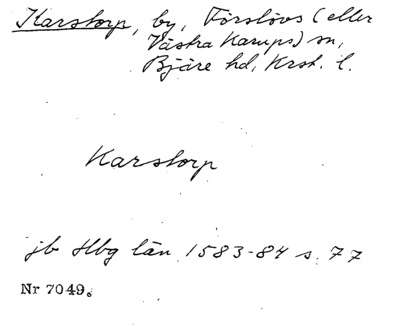 Karstorp, by, Förslövs (eller
Västra Karups) sn,
Bjäre hd, Krst. l.
Karstorp
jb Hbg län 1583-84 s. 77
Nr 7049.